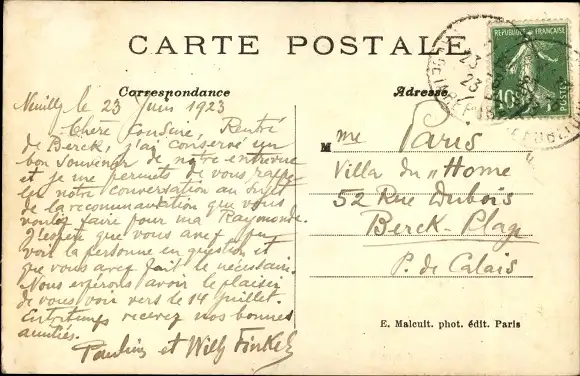 CARTE POSTALE
Correspondance
Adresse
RÉPUBLIQUE FRANÇAISE
10
POSTES
Neuilly le 23 Juin 1923
Chère Cousine, Rentré
de Berck, j'ai conservé un
bon souvenir de notre entrevue
et je me permets de vous rappe-
ler notre conversation au sujet
de la recommandation que vous
voulez faire pour ma Raymonde.
J'espère que vous avez pu
voir la personne en question et
que vous avez fait le nécessaire.
Nous espérons avoir le plaisir
de vous voir vers le 14 Juillet.
Entretemps recevez nos bonnes
amitiés.
et Willy Finkel
Mme Paris
Villa du "Home"
52 Rue Dubois
Berck-Plage
P. de Calais
E. Malcuit. phot. édit. Paris